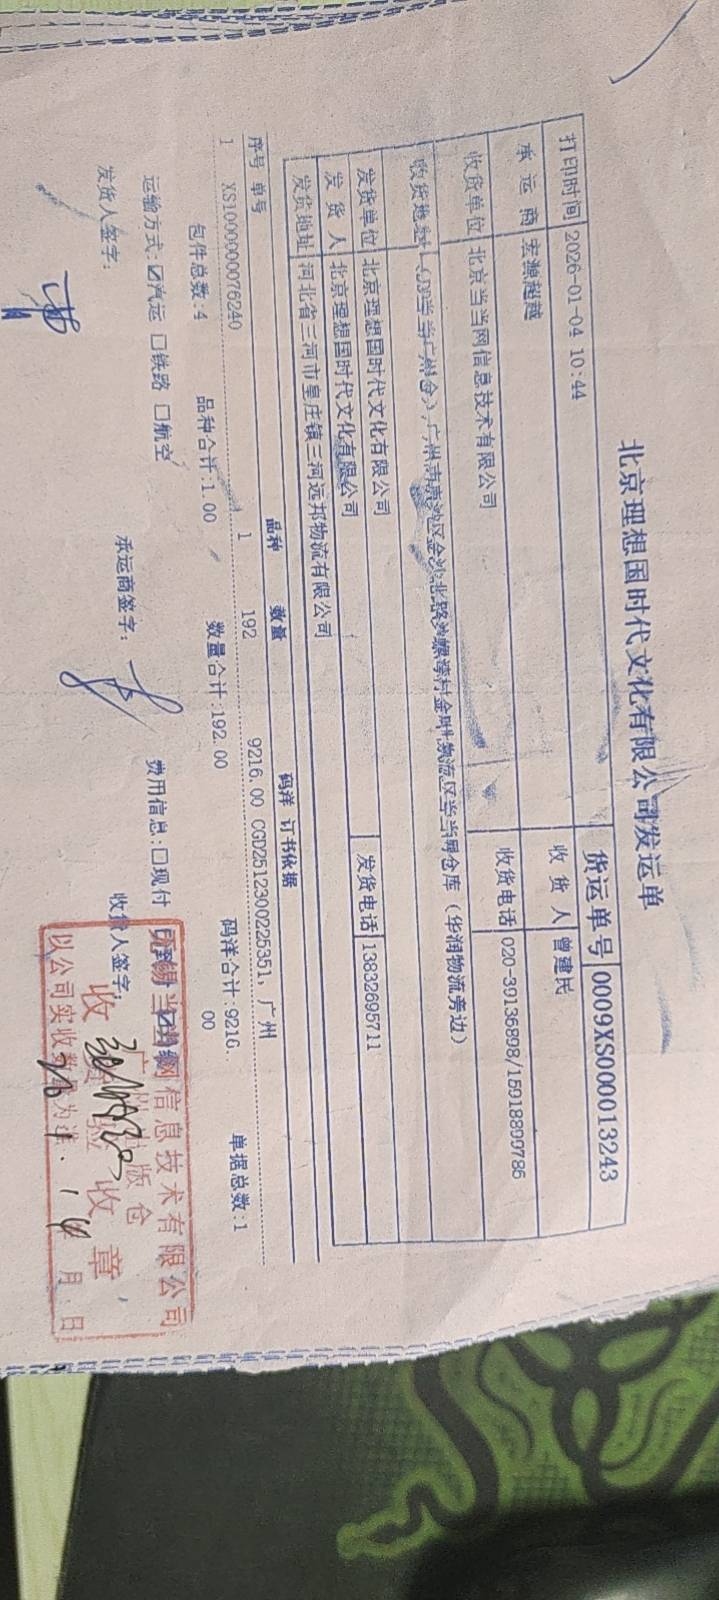 北京理想国时代文化有限公司发运单
货运单号 0009XS000013243
打印时间 2026-01-04 10:44 收 货 人 曾建民
承 运 商 宏源超越
收货单位 北京当当网信息技术有限公司 收货电话 020-39136898/15918899786
收货地址 广州市 金沙北路 村金 物流区当当网仓库（华润物流旁边）
发货单位 北京理想国时代文化有限公司 发货电话 13832695711
发 货 人 北京理想国时代文化有限公司
发货地址 河北省三河市皇庄镇三河远邦物流有限公司
序号 单号 品种 数量 码洋 订书依据
1 XS1000000076240 1 192 9216.00 CGD2512300225351, 广州
包件总数:4 品种合计:1.00 数量合计:192.00 码洋合计:9216.00 单据总数:1
运输方式:☑汽运 □铁路 □航空 费用信息:□现付
发货人签字: 承运商签字: 收货人签字:
当当网信息技术有限公司
版仓
收 验 收 章
以公司实收数 为准
月 日